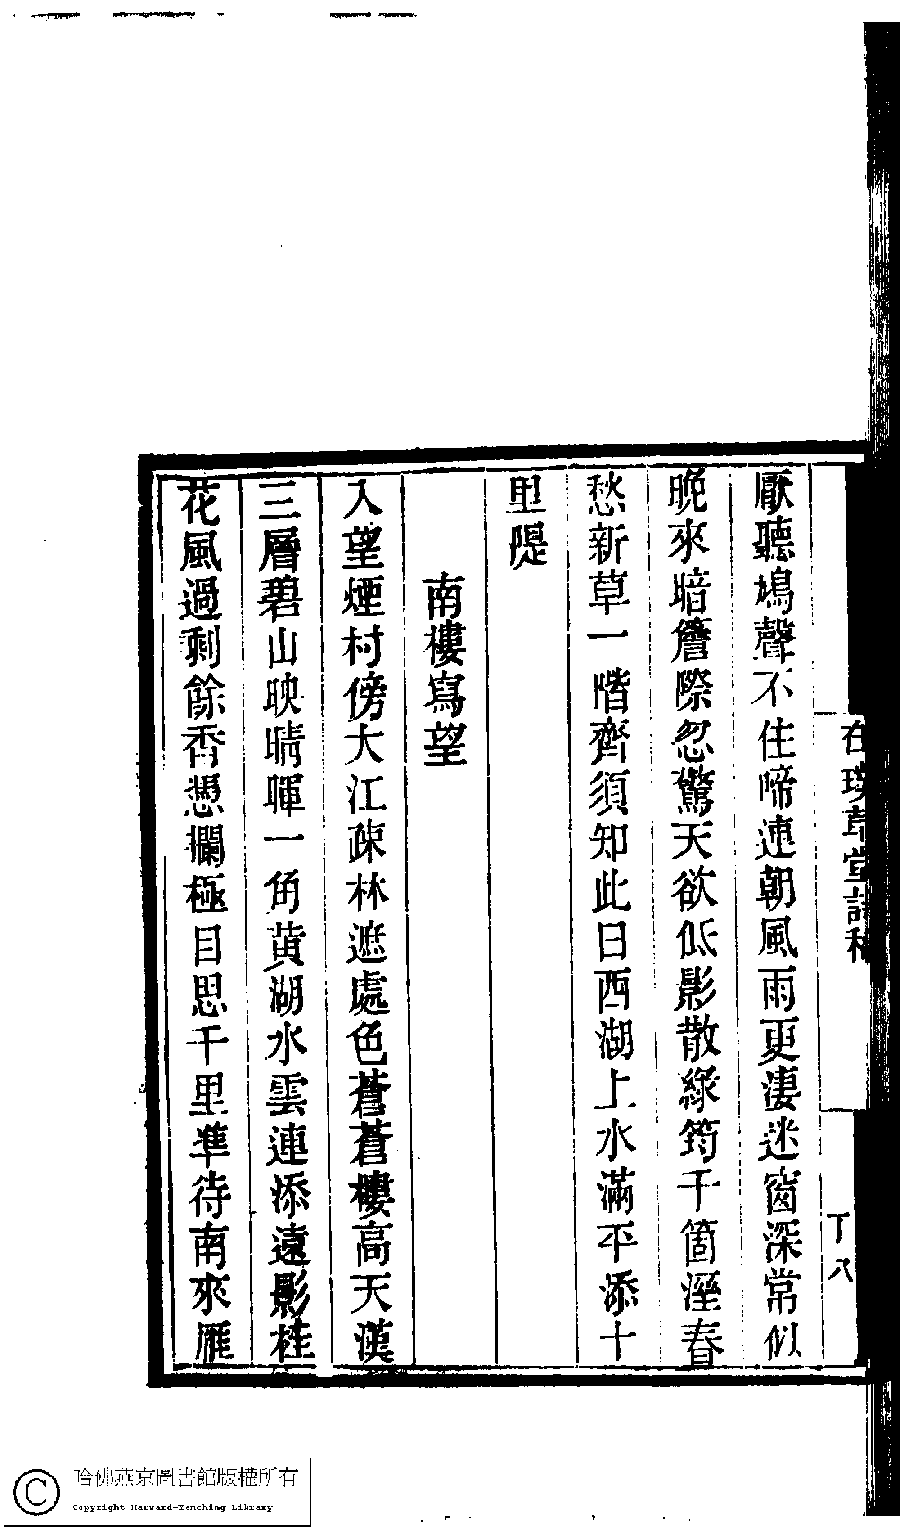 厭聽鳩聲不住啼連朝風雨更淒迷窗深常似
晚來暗簷際忽驚天欲低影散綠筠千箇溼春
愁新草一愷齊須知此日西湖上水滿平添十
里隄
南樓寫望
入望煙村傍大江疎林遮處色蒼蒼樓高天漢
三層碧山映晴暉一角黃湖水雲連添遠影桂
花風過剩餘香憑欄極目思千里準待南來雁
在璞草堂詩稿
丁八
哈佛燕京圖書館版權所有
Copyright Harvard-Yenching Library